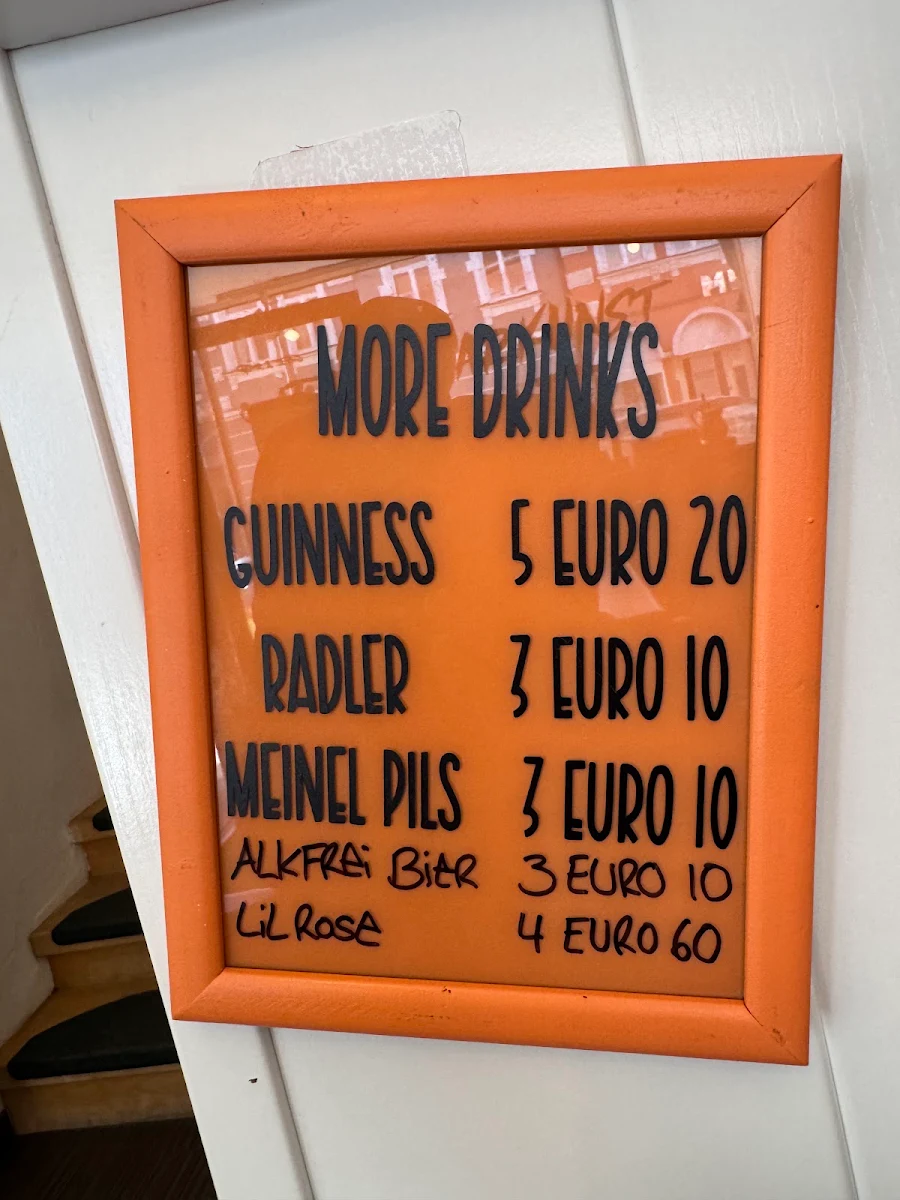 MORE DRINKS
GUINNESS 5 EURO 20
RADLER 3 EURO 10
MEINEL PILS 3 EURO 10
ALKFREi BiER 3 EURO 10
LiL ROSE 4 EURO 60